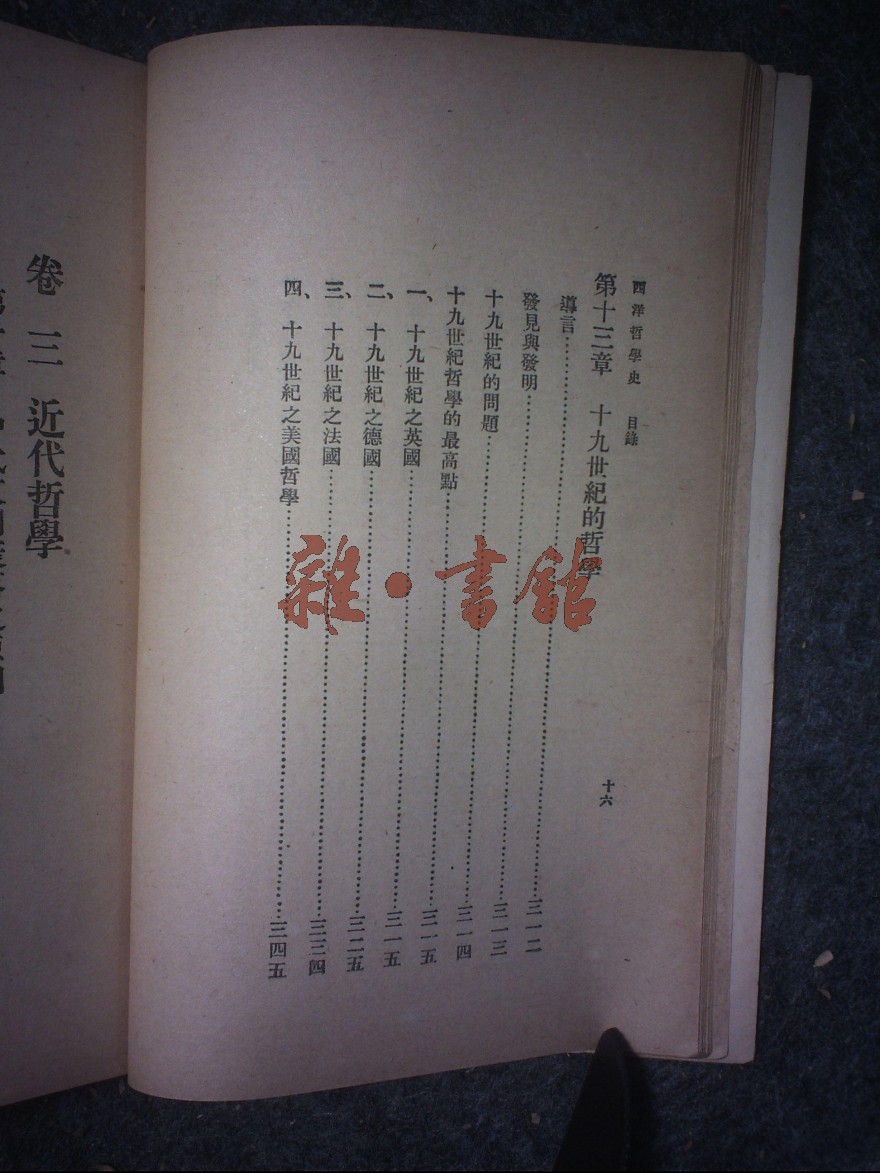 西洋哲學史 目錄
十六
第十三章 十九世紀的哲學
導言……三一二
發見與發明……三一三
十九世紀的問題……三一四
十九世紀哲學的最高點……三一五
一、十九世紀之英國……三一五
二、十九世紀之德國……三二五
三、十九世紀之法國……三三四
四、十九世紀之美國哲學……三四五
雜·書館
卷三 近代哲學